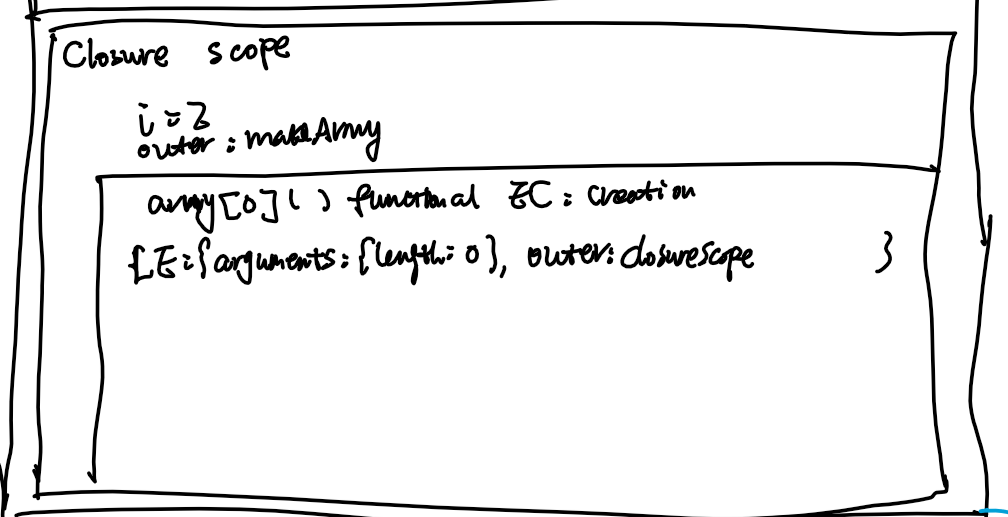 Closure scope
i = 2
outer : makeArray
array[0]( ) functional EC : creation
LE:{arguments:{length:0}, outer:closurescope }